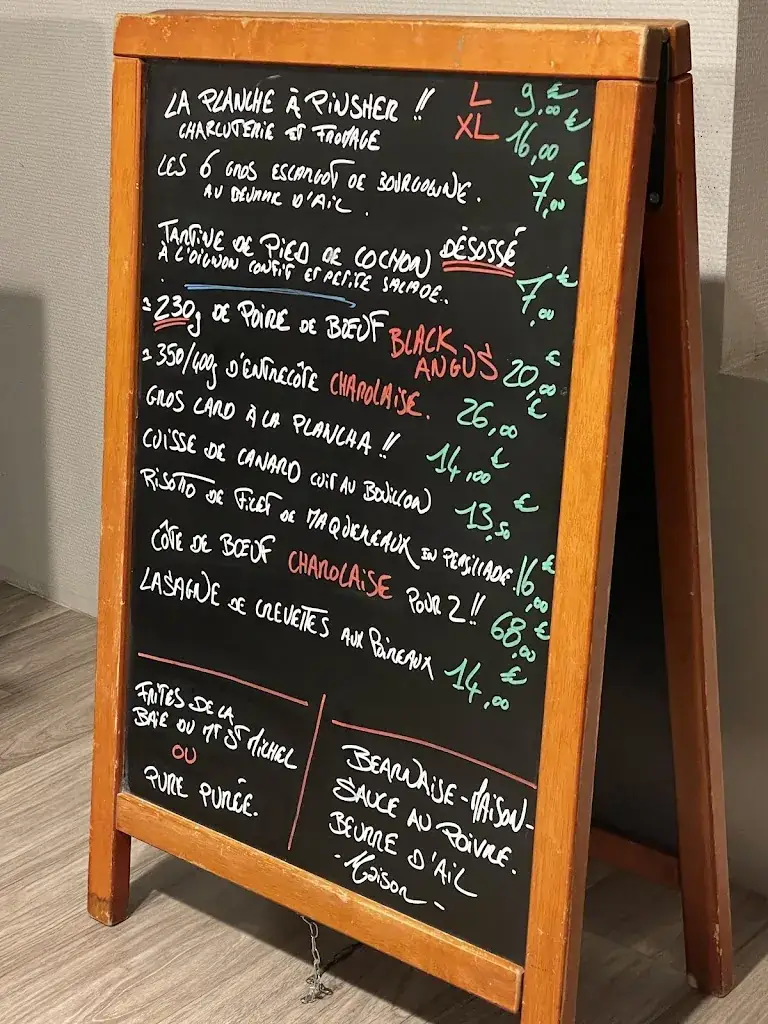 LA PLANCHE À PINSHER !! L 9,00 €
CHARCUTERIE ET FROMAGE XL 16,00 €
LES 6 GROS ESCARGOT DE BOURGOGNE. 7,00 €
AU BEURRE D'AIL.
TARTINE DE PIED DE COCHON DÉSOSSÉ
À L'OIGNON CONFIT ET PETITE SALADE. 7,00 €
± 230g DE POIRE DE BŒUF BLACK ANGUS 20,00 €
± 350/400g D'ENTRECÔTE CHAROLAISE. 26,00 €
GROS LARD À LA PLANCHA !! 14,00 €
CUISSE DE CANARD CUIT AU BOUILLON 13,50 €
RISOTTO DE FILET DE MAQUEREAUX EN PERSILLADE. 16,00 €
CÔTE DE BŒUF CHAROLAISE POUR 2 !! 68,00 €
LASAGNE DE CREVETTES AUX POIREAUX 14,00 €
FRITES DE LA
BAIE DU MT ST MICHEL
OU
PURE PURÉE.
BEARNAISE -MAISON-
SAUCE AU POIVRE.
BEURRE D'AIL
- Maison -